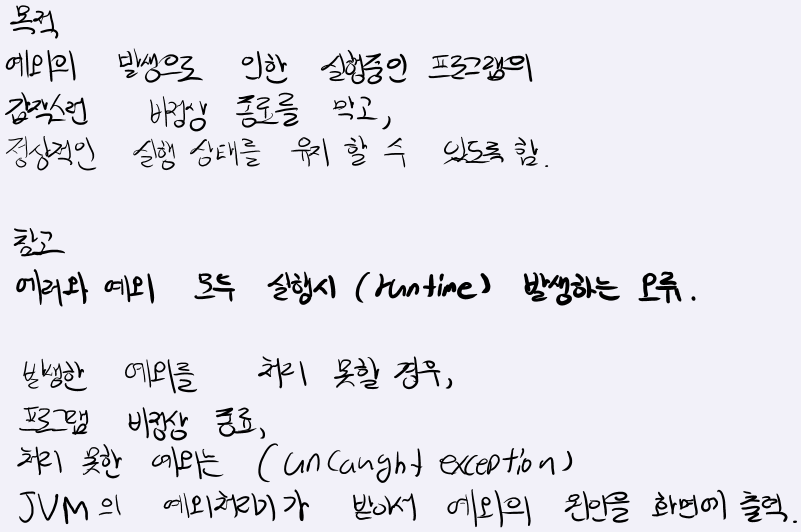 목적
예외의 발생으로 인한 실행중인 프로그램의
갑작스런 비정상 종료를 막고,
정상적인 실행 상태를 유지 할 수 있도록 함.
참고
에러와 예외 모두 실행시 (runtime) 발생하는 오류.
발생한 예외를 처리 못할 경우,
프로그램 비정상 종료,
처리 못한 예외는 (uncaught exception)
JVM의 예외처리기가 받아서 예외의 원인을 화면에 출력.